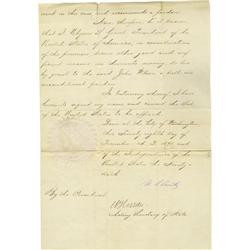 and in this case and recommends a pardon
Now therefore be it known
that I Ulysses S. Grant President of the
United States of America, in consideration
of the premises divers other good and suf
ficient reasons me thereunto moving do here
by grant to the said John
unconditional pardon
In testimony whereof, I have
hereunto signed my name and caused the Seal
of the United States to be affixed.
Done at the City of Washington
this Twenty eighth day of
A. D. 187
of the Independence of the
United States the Ninety-
U. S. Grant
By the President
Acting Secretary of State